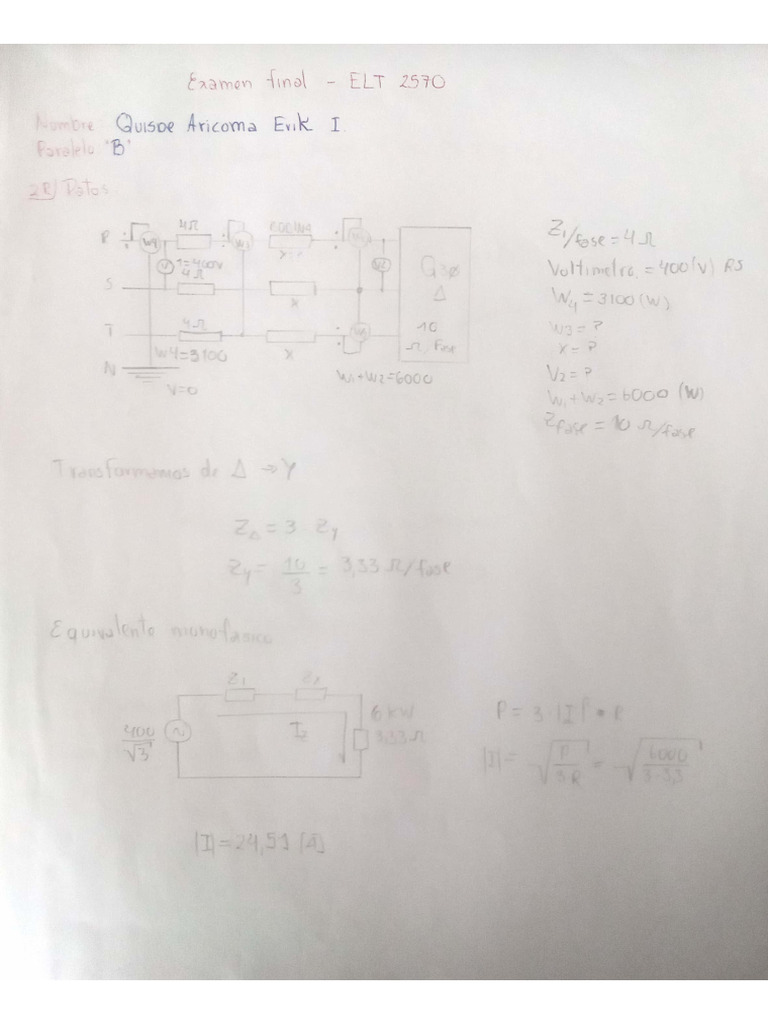 Examen final - ELT 2570
Nombre Quispe Aricoma Erik I.
Paralelo "B"
2R/ Datos.
R W4 4Ω W3 X W1
V 1=400V V2 Q3Φ
S 4Ω X Δ
T 4Ω X 10
W4=3100 Ω/Fase
N W1+W2=6000
V=0
Z1/fase=4Ω
Voltimetro = 400(V) RS
W4=3100(W)
W3=?
X=?
V2=?
W1+W2=6000 (W)
Zfase=10Ω/fase
Transformamos de Δ→Y
ZΔ=3 ZY
ZY=10/3=3,33Ω/fase
Equivalente monofasico
Z1
400/√3 I 6kW
3,33Ω
P=3|I|²•R
|I|=√(P/3R)=√(6000/3·3,3)
|I|=24,51[A]